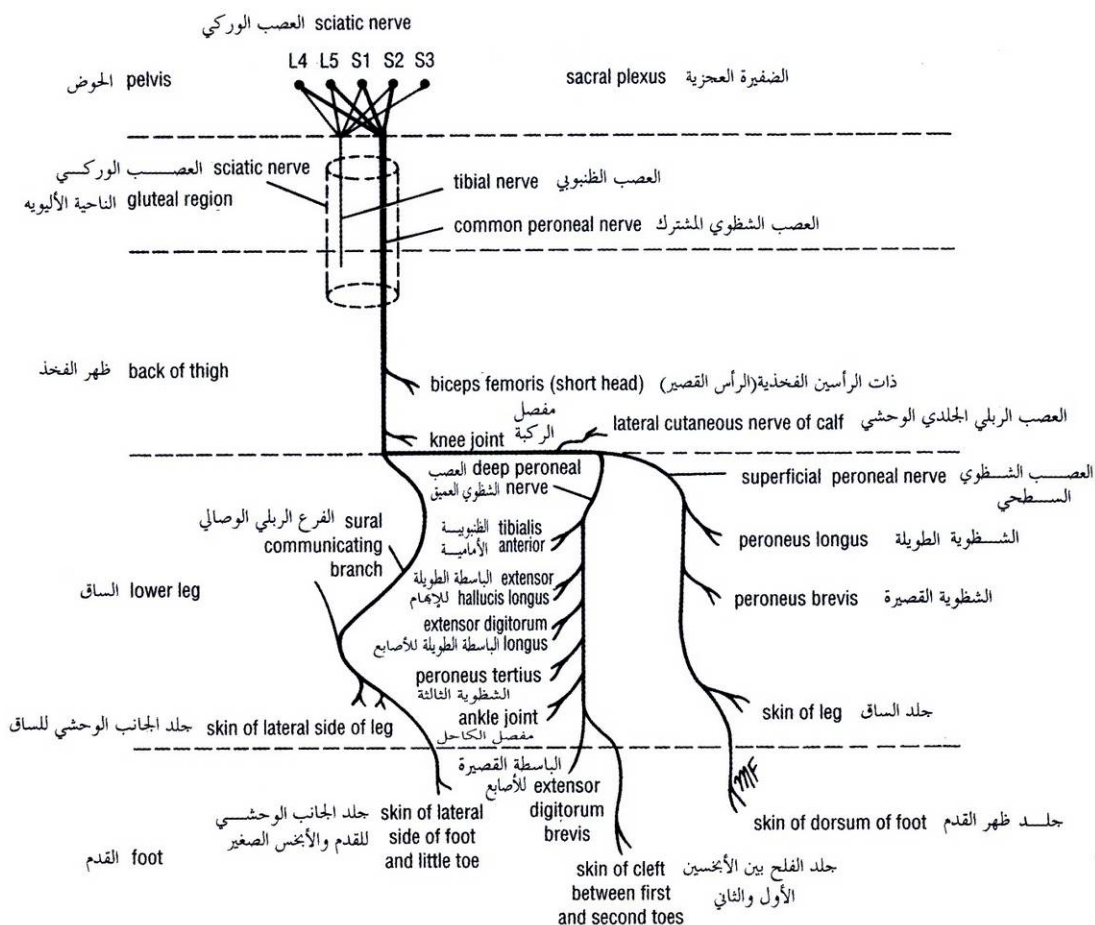 العصب الوركي sciatic nerve
L4 L5 S1 S2 S3
الحوض pelvis
sacral plexus الضفيرة العجزية
العصب الوركي sciatic nerve
الناحية الأليويه gluteal region
tibial nerve العصب الظنبوبي
common peroneal nerve العصب الشظوي المشترك
ظهر الفخذ back of thigh
biceps femoris (short head) ذات الرأسين الفخذية(الرأس القصير)
knee joint مفصل
الركبة
lateral cutaneous nerve of calf العصب الربلي الجلدي الوحشي
العصب deep peroneal
الشظوي العميق nerve
superficial peroneal nerve العصب الشظوي
السطحي
الفرع الربلي الوصالي sural
communicating
branch
الظنبوبية tibialis
الأمامية anterior
peroneus longus الشظوية الطويلة
الساق lower leg
الباسطة الطويلة extensor
للإبهام hallucis longus
peroneus brevis الشظوية القصيرة
extensor digitorum
الباسطة الطويلة للأصابع longus
peroneus tertius
الشظوية الثالثة
ankle joint
مفصل الكاحل
جلد الجانب الوحشي للساق skin of lateral side of leg
skin of leg جلد الساق
الباسطة القصيرة
للأصابع extensor
digitorum
brevis
MF
جلد الجانب الوحشي skin of lateral
للقدم والأبخس الصغير side of foot
and little toe
skin of dorsum of foot جلد ظهر القدم
القدم foot
skin of cleft جلد الفلح بين الأبخسين
between first الأول والثاني
and second toes